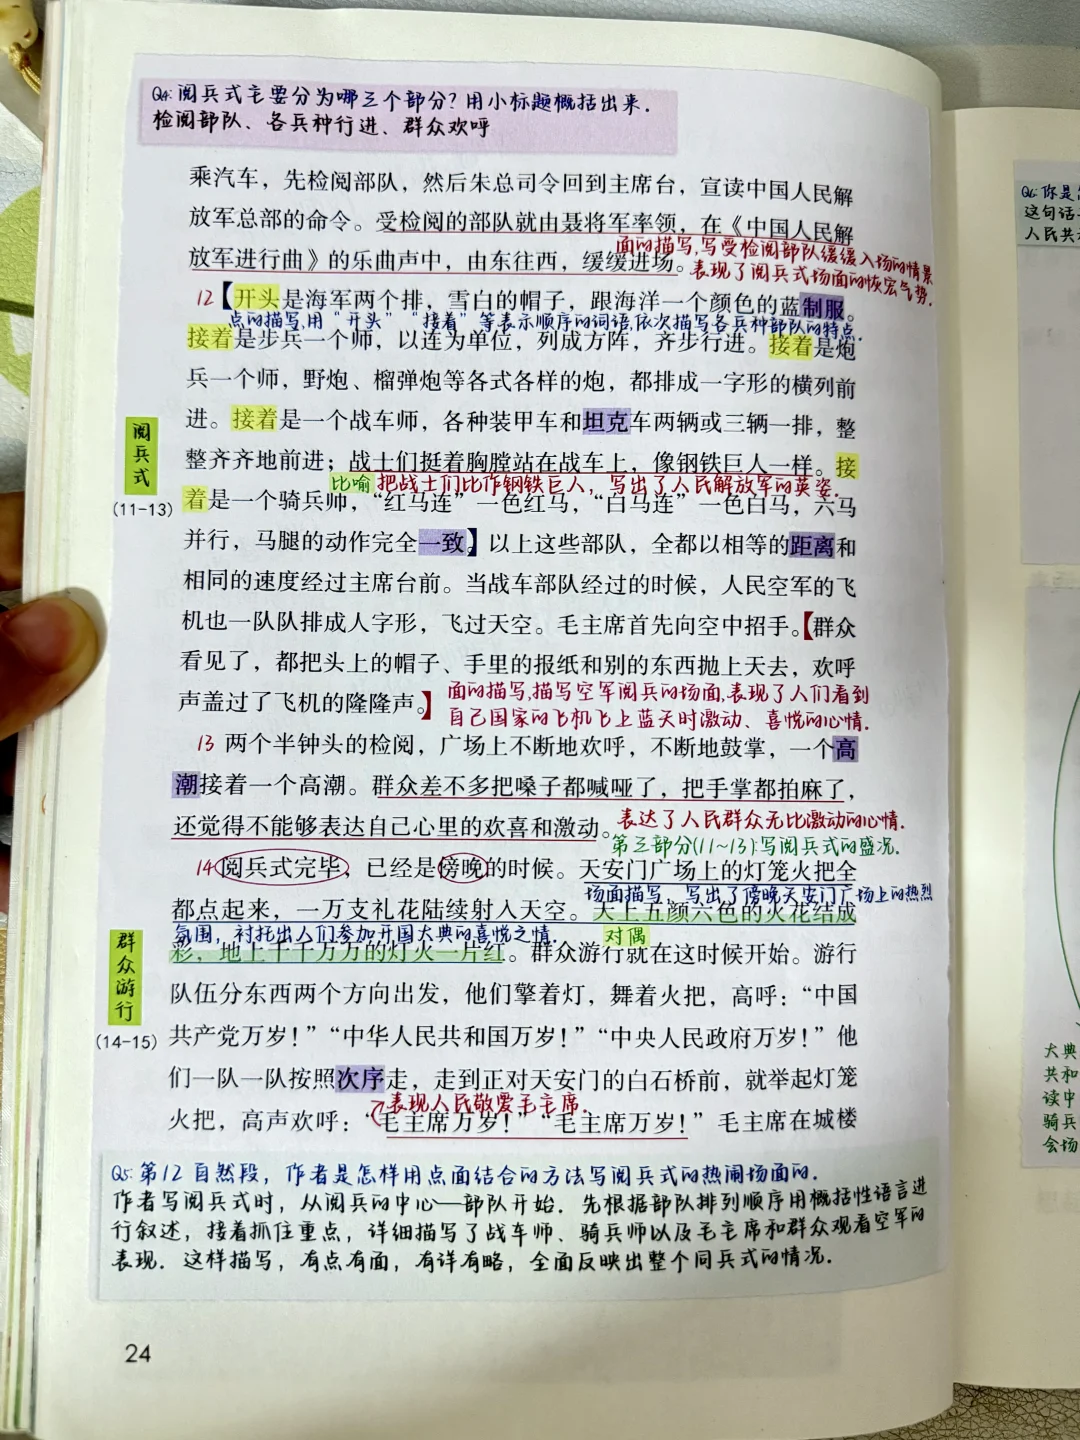 Q4:阅兵式主要分为哪三个部分?用小标题概括出来.
检阅部队、各兵种行进、群众欢呼
乘汽车，先检阅部队，然后朱总司令回到主席台，宣读中国人民解
放军总部的命令。受检阅的部队就由聂将军率领，在《中国人民解
面的描写,写受检阅部队缓缓入场的情景
放军进行曲》的乐曲声中，由东往西，缓缓进场。
表现了阅兵式场面的恢宏气势.
12【开头是海军两个排，雪白的帽子，跟海洋一个颜色的蓝制服。
点的描写,用“开头”“接着”等表示顺序的词语,依次描写各兵种部队的特点.
接着是步兵一个师，以连为单位，列成方阵，齐步行进。接着是炮
兵一个师，野炮、榴弹炮等各式各样的炮，都排成一字形的横列前
进。接着是一个战车师，各种装甲车和坦克车两辆或三辆一排，整
整齐齐地前进；战士们挺着胸膛站在战车上，像钢铁巨人一样。接
比喻 把战士们比作钢铁巨人，写出了人民解放军的英姿.
着是一个骑兵师，“红马连”一色红马，“白马连”一色白马，六马
并行，马腿的动作完全一致。】以上这些部队，全都以相等的距离和
相同的速度经过主席台前。当战车部队经过的时候，人民空军的飞
机也一队队排成人字形，飞过天空。毛主席首先向空中招手。【群众
看见了，都把头上的帽子、手里的报纸和别的东西抛上天去，欢呼
声盖过了飞机的隆隆声。】
面的描写,描写空军阅兵的场面,表现了人们看到
自己国家的飞机飞上蓝天时激动、喜悦的心情.
13 两个半钟头的检阅，广场上不断地欢呼，不断地鼓掌，一个高
潮接着一个高潮。群众差不多把嗓子都喊哑了，把手掌都拍麻了，
还觉得不能够表达自己心里的欢喜和激动。
表达了人民群众无比激动的心情.
第三部分(11~13):写阅兵式的盛况.
阅兵式
(11-13)
14 阅兵式完毕，已经是傍晚的时候。天安门广场上的灯笼火把全
场面描写，写出了傍晚天安门广场上的热烈
都点起来，一万支礼花陆续射入天空。天上五颜六色的火花结成
氛围，衬托出人们参加开国大典的喜悦之情.
对偶
彩，地上千千万万的灯火一片红。群众游行就在这时候开始。游行
队伍分东西两个方向出发，他们擎着灯，舞着火把，高呼：“中国
共产党万岁！”“中华人民共和国万岁！”“中央人民政府万岁！”他
们一队一队按照次序走，走到正对天安门的白石桥前，就举起灯笼
表现人民敬爱毛主席.
火把，高声欢呼：“毛主席万岁！”“毛主席万岁！”毛主席在城楼
群众游行
(14-15)
Q5:第12自然段，作者是怎样用点面结合的方法写阅兵式的热闹场面的.
作者写阅兵式时，从阅兵的中心—部队开始．先根据部队排列顺序用概括性语言进
行叙述，接着抓住重点，详细描写了战车师、骑兵师以及毛主席和群众观看空军的
表现．这样描写，有点有面，有详有略，全面反映出整个阅兵式的情况.
24
Q6:你是
这句话
人民共
大典
共和
读中
骑兵
会场